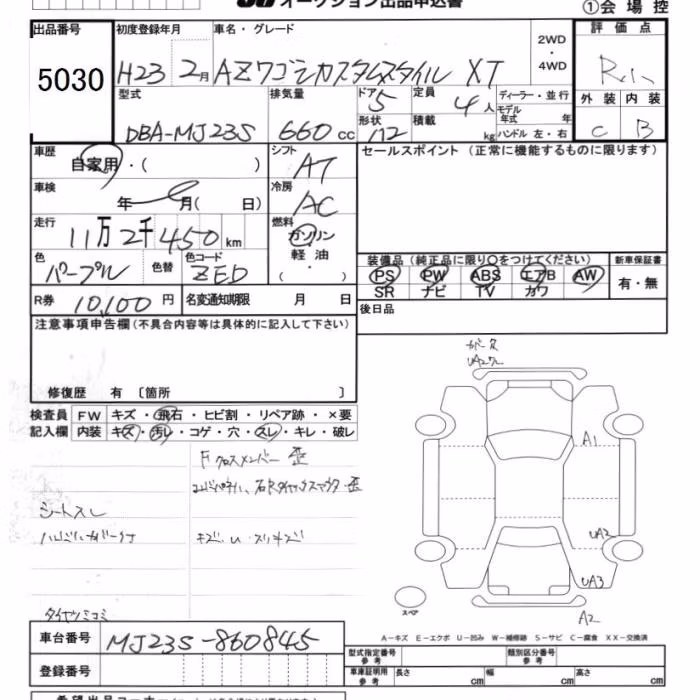 オークション出品申込書
①会場控
出品番号 5030
初度登録年月 H23 2月
車名・グレード AZワゴンカスタムスタイル XT
2WD・4WD
評価点
外装 C 内装 B
型式 DBA-MJ23S
排気量 660 cc
ドア 5
形状
定員 4人
積載 kg
ディーラー・並行
モデル年式 年
ハンドル 左・右
車歴 自家用・( )
シフト AT
セールスポイント(正常に機能するものに限ります)
車検 年 月( 日)
冷房 AC
走行 11万2千450km
燃料 ガソリン 軽油・( )
色 パープル 色替
色コード ZED
装備品(純正品に限り○をつけてください) 新車保証書
PS PW ABS エアB AW 有・無
SR ナビ TV カワ
R券 10,100円 名変通知期限 月 日
後日品
注意事項申告欄(不具合内容等は具体的に記入して下さい)
修復歴 有〔箇所 〕
検査員記入欄 FW キズ・飛石・ヒビ割・リペア跡・×要
内装 キズ・汚レ・コゲ・穴・スレ・キレ・破レ
Fクロスメンバー 歪
シートスレ
キズ、U・スリキズ
A1
UA2
UA3
A2
スペア
A-キズ E-エクボ U-凹み W-補修跡 S-サビ C-腐食 XX-交換済
車台番号 MJ23S-860845
登録番号
型式指定番号 参考 類別区分番号 参考
車庫証明用 参考 長さ cm 幅 cm 高さ cm